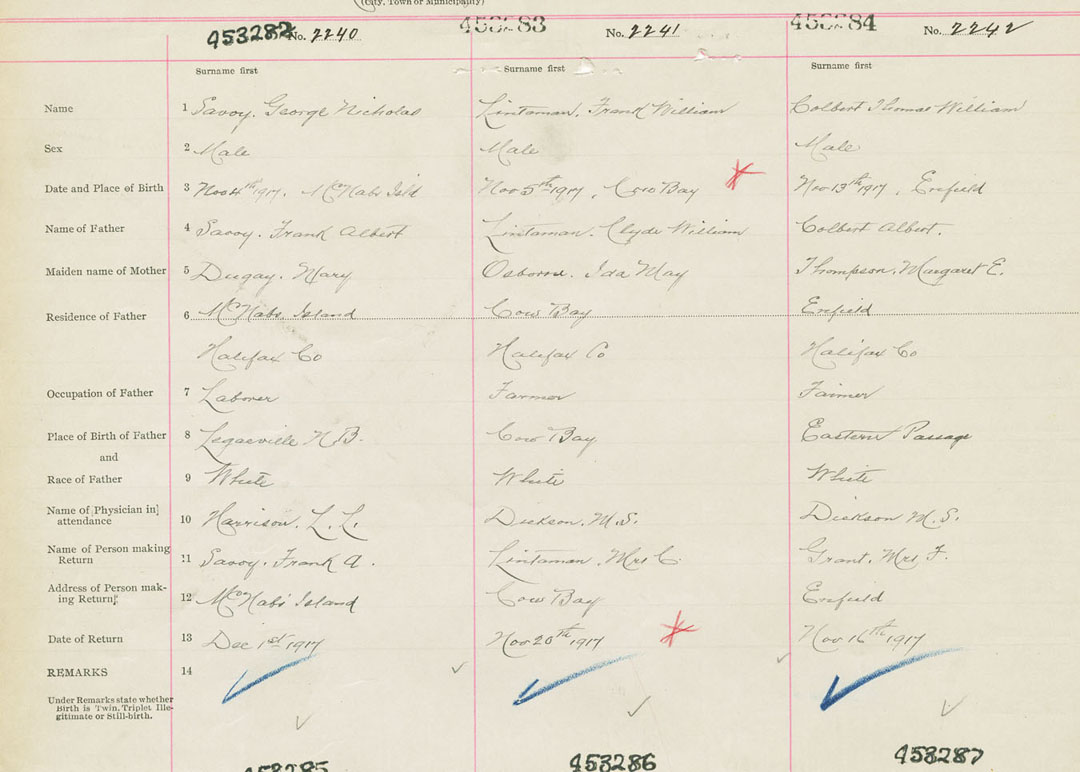 (City, Town or Municipality)
453282 No. 2240 453283 No. 2241 453284 No. 2242
Surname first Surname first Surname first
Name 1 Savoy, George Nicholas Lintaman, Frank William Colbert Thomas William
Sex 2 Male Male Male
Date and Place of Birth 3 Nov 4th 1917, McNabs Isld Nov 5th 1917, Cow Bay Nov 13th 1917, Enfield
Name of Father 4 Savoy, Frank Albert Lintaman, Clyde William Colbert Albert.
Maiden name of Mother 5 Dugay, Mary Osborne, Ida May Thompson, Margaret E.
Residence of Father 6 McNabs Island Cow Bay Enfield
Halifax Co Halifax Co Halifax Co
Occupation of Father 7 Laborer Farmer Farmer
Place of Birth of Father 8 Legaeville N.B. Cow Bay Eastern Passage
and
Race of Father 9 White White White
Name of Physician in
attendance 10 Harrison, L. L. Dickson, M.S. Dickson M.S.
Name of Person making
Return 11 Savoy, Frank A. Lintaman, Mrs C. Grant, Mrs F.
Address of Person mak-
ing Return 12 McNabs Island Cow Bay Enfield
Date of Return 13 Dec 1st 1917 Nov 20th 1917 Nov 16th 1917
REMARKS 14
Under Remarks state whether
Birth is Twin, Triplet Ille-
gitimate or Still-birth.
453285 453286 453287